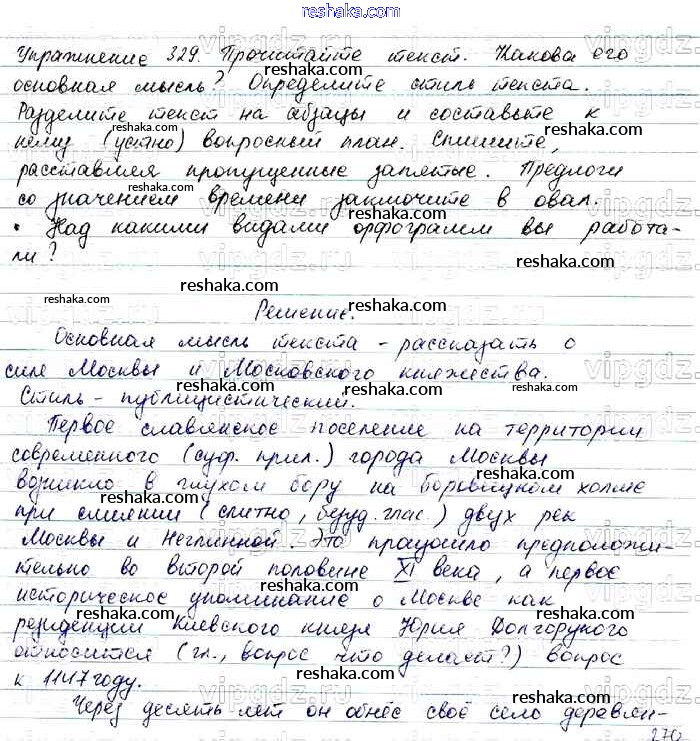 reshaka.com
Упражнение 329. Прочитайте текст. Какова его
основная мысль? Определите стиль текста.
Разделите текст на абзацы и составьте к
нему (устно) вопросный план. Спишите,
расставляя пропущенные запятые. Предлоги
со значением времени заключите в овал.
• Над какими видами орфограмм вы работа-
ли?
Решение.
Основная мысль текста - рассказать о
силе Москвы и Московского княжества.
Стиль - публицистический.
Первое славянское поселение на территории
современного (суф. прил.) города Москвы
возникло в глухом бору на боровицком холме
при слиянии (слитно, безуд. глас.) двух рек
Москвы и Неглинной. Это произошло предположи-
тельно во второй половине XI века, а первое
историческое упоминание о Москве как
резиденции Киевского князя Юрия Долгорукого
относится (гл., вопрос что делает?) вопрос
к 1147 году.
Через десять лет он обнёс своё село деревян-
270